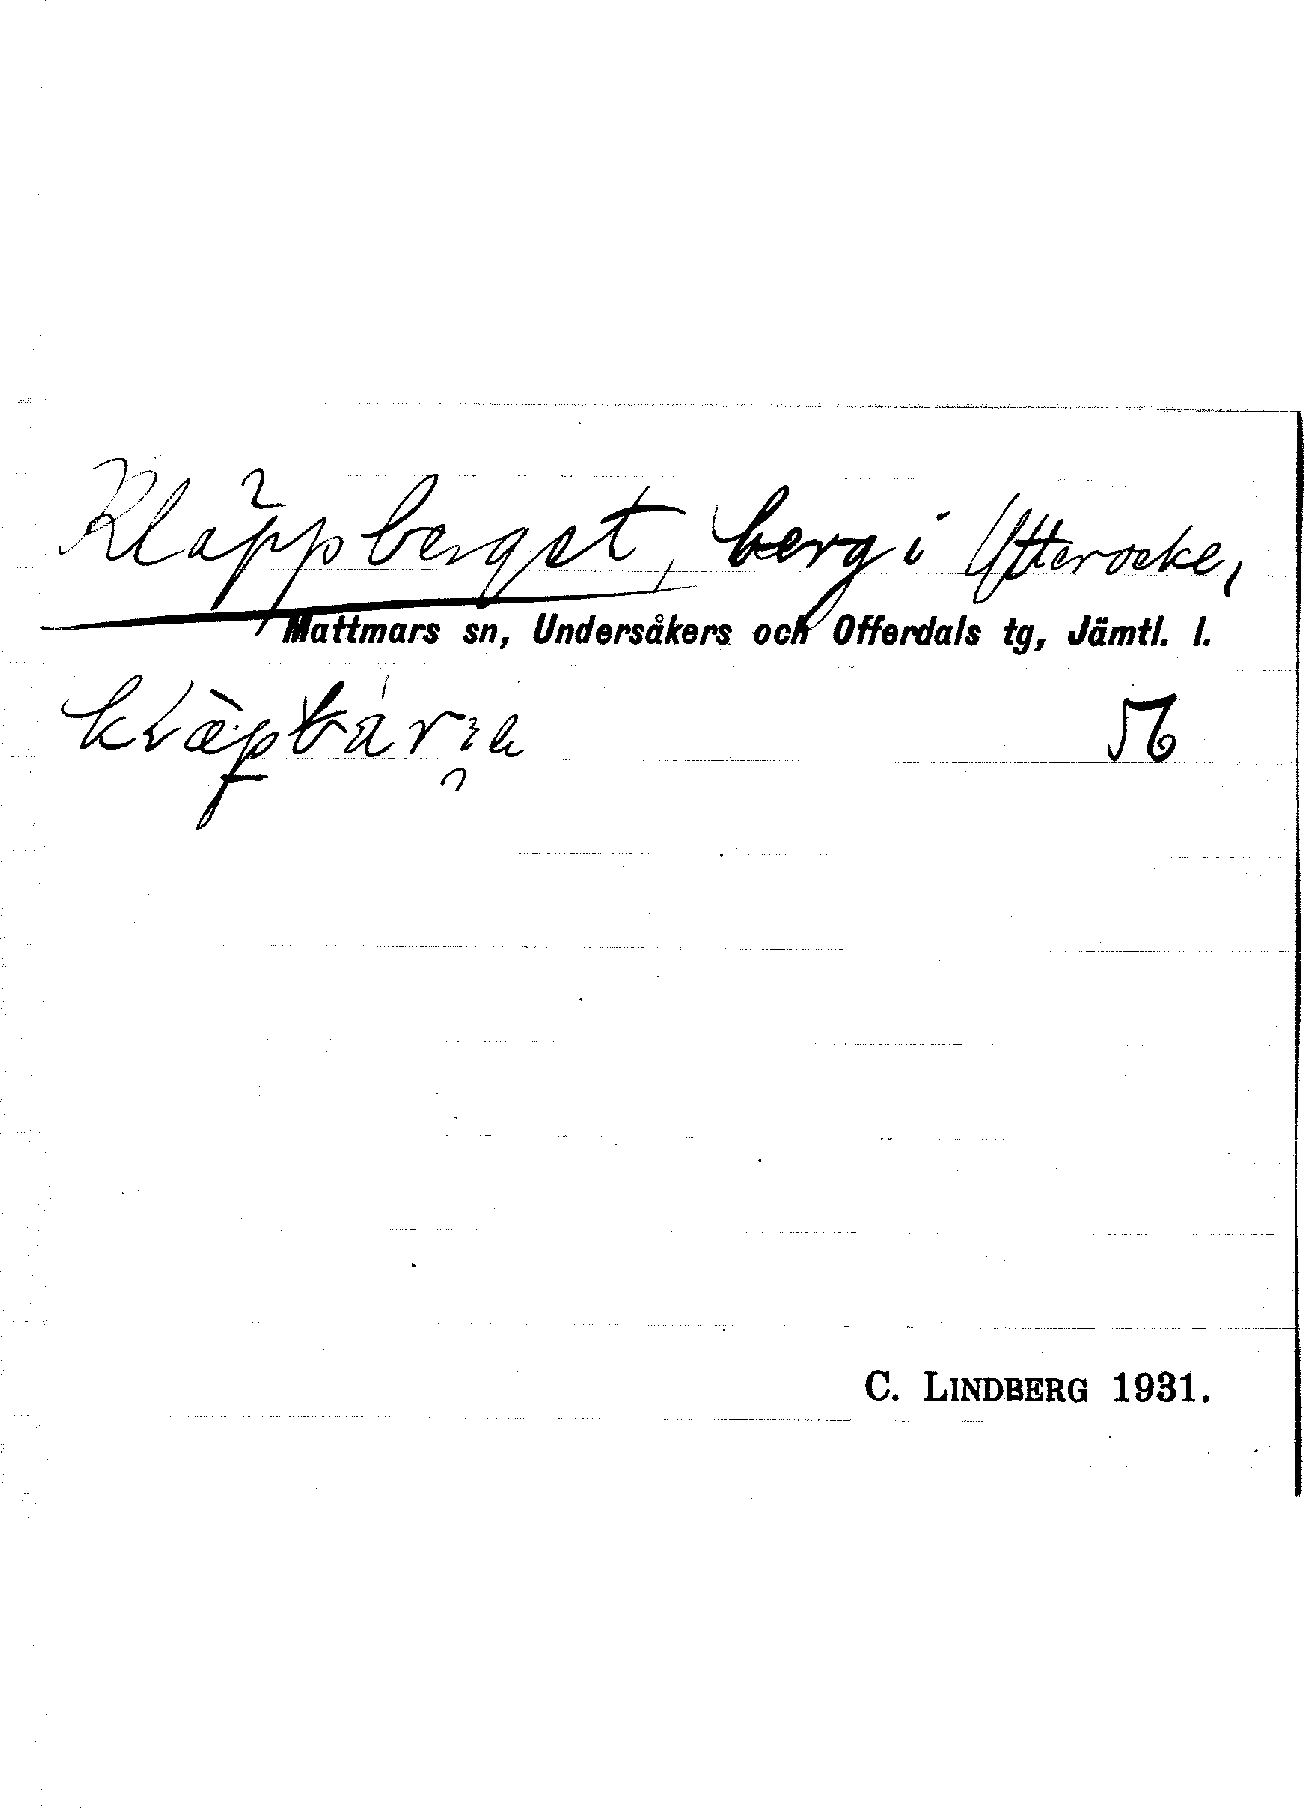 Kläppberget, berg i Ytterocke,
Mattmars sn, Undersåkers och Offerdals tg, Jämtl. l.
56
C. LINDBERG 1931.